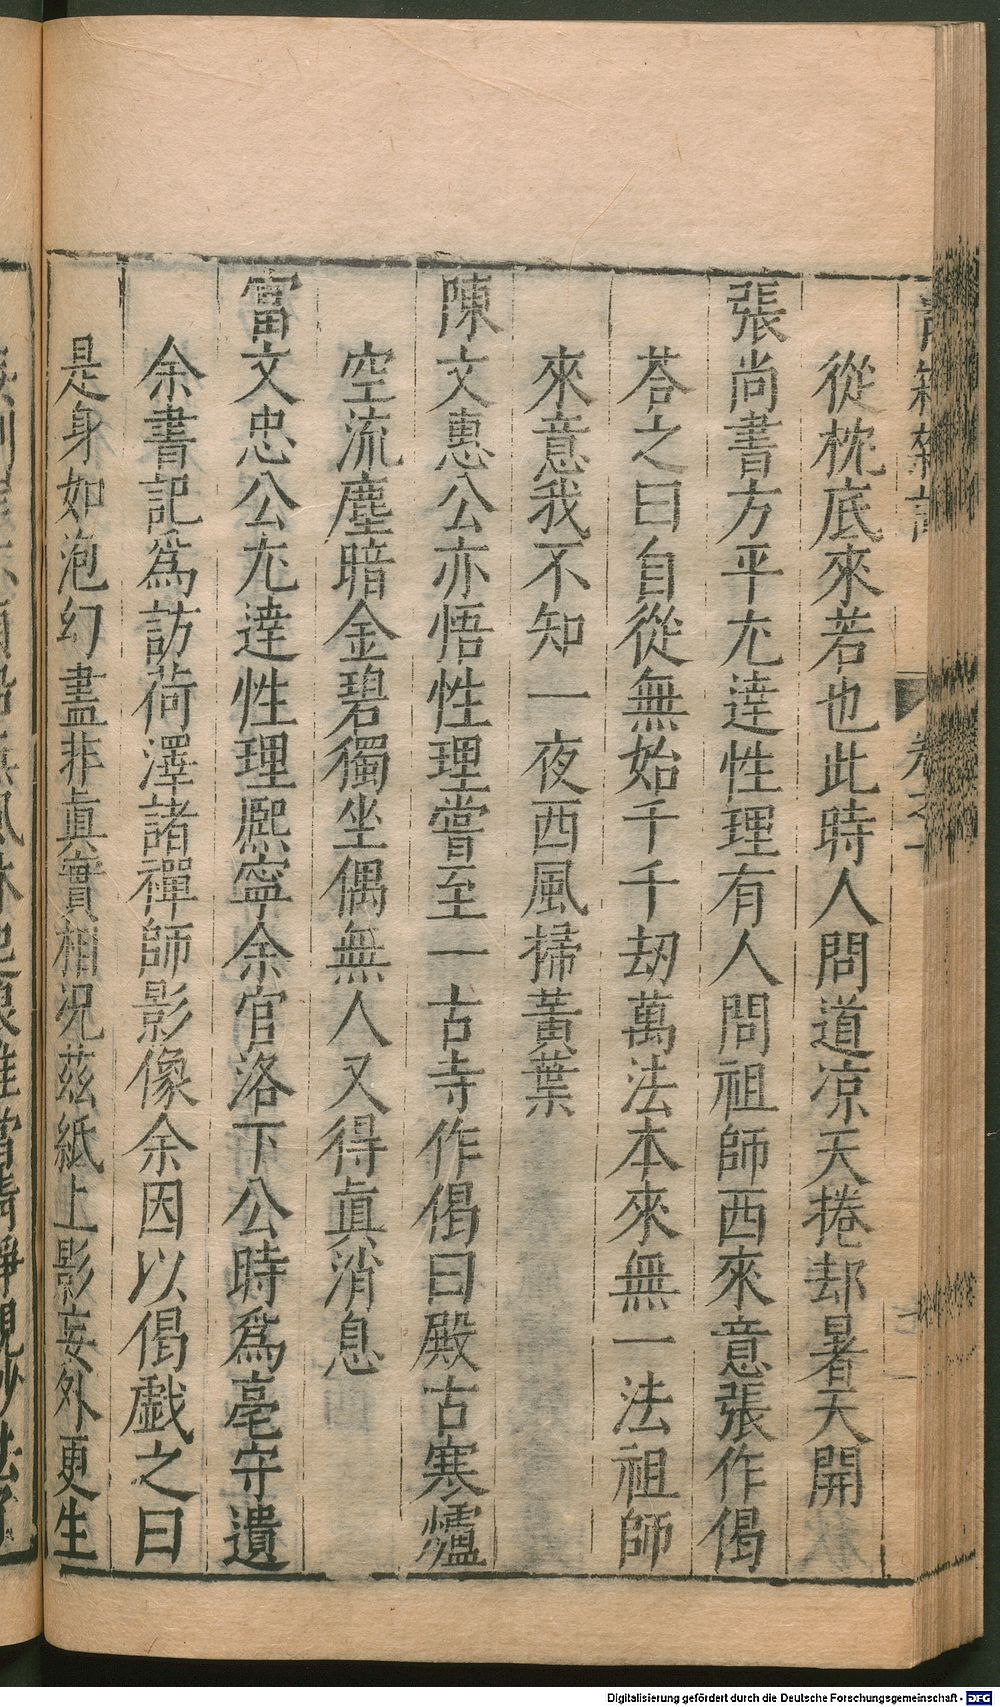 從枕底來若也此時人問道凉天捲却暑天開
張尚書方平尢達性理有人問祖師西來意張作偈
荅之曰自從無始千千刼萬法本來無一法祖師
來意我不知一夜西風掃黃葉
陳文惠公亦悟性理嘗至一古寺作偈曰殿古寒爐
空流塵暗金碧獨坐偶無人又得眞消息
富文忠公尢達性理熙寧余官洛下公時爲亳守遺
余書記爲訪荷澤諸禪師影像余因以偈戯之曰
是身如泡幻盡非眞實相况茲紙上影妄外更生
Digitalisierung gefördert durch die Deutsche Forschungsgemeinschaft - DFG